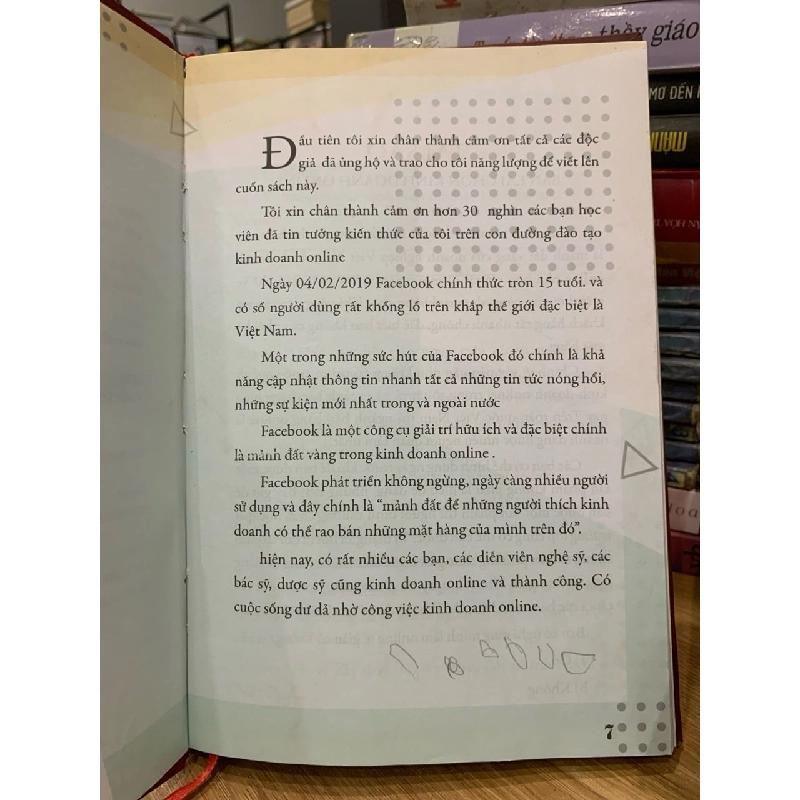 thầy giáo
MƠ ĐẾN
Đầu tiên tôi xin chân thành cảm ơn tất cả các độc
giả đã ủng hộ và trao cho tôi năng lượng để viết lên
cuốn sách này.
Tôi xin chân thành cảm ơn hơn 30 nghìn các bạn học
viên đã tin tưởng kiến thức của tôi trên con đường đào tạo
kinh doanh online
Ngày 04/02/2019 Facebook chính thức tròn 15 tuổi. và
có số người dùng rất khổng lồ trên khắp thế giới đặc biệt là
Việt Nam.
Một trong những sức hút của Facebook đó chính là khả
năng cập nhật thông tin nhanh tất cả những tin tức nóng hổi,
những sự kiện mới nhất trong và ngoài nước
Facebook là một công cụ giải trí hữu ích và đặc biệt chính
là mảnh đất vàng trong kinh doanh online .
Facebook phát triển không ngừng, ngày càng nhiều người
sử dụng và đây chính là “mảnh đất để những người thích kinh
doanh có thể rao bán những mặt hàng của mình trên đó”.
hiện nay, có rất nhiều các bạn, các diễn viên nghệ sỹ, các
bác sỹ, dược sỹ cũng kinh doanh online và thành công. Có
cuộc sống dư dả nhờ công việc kinh doanh online.
7